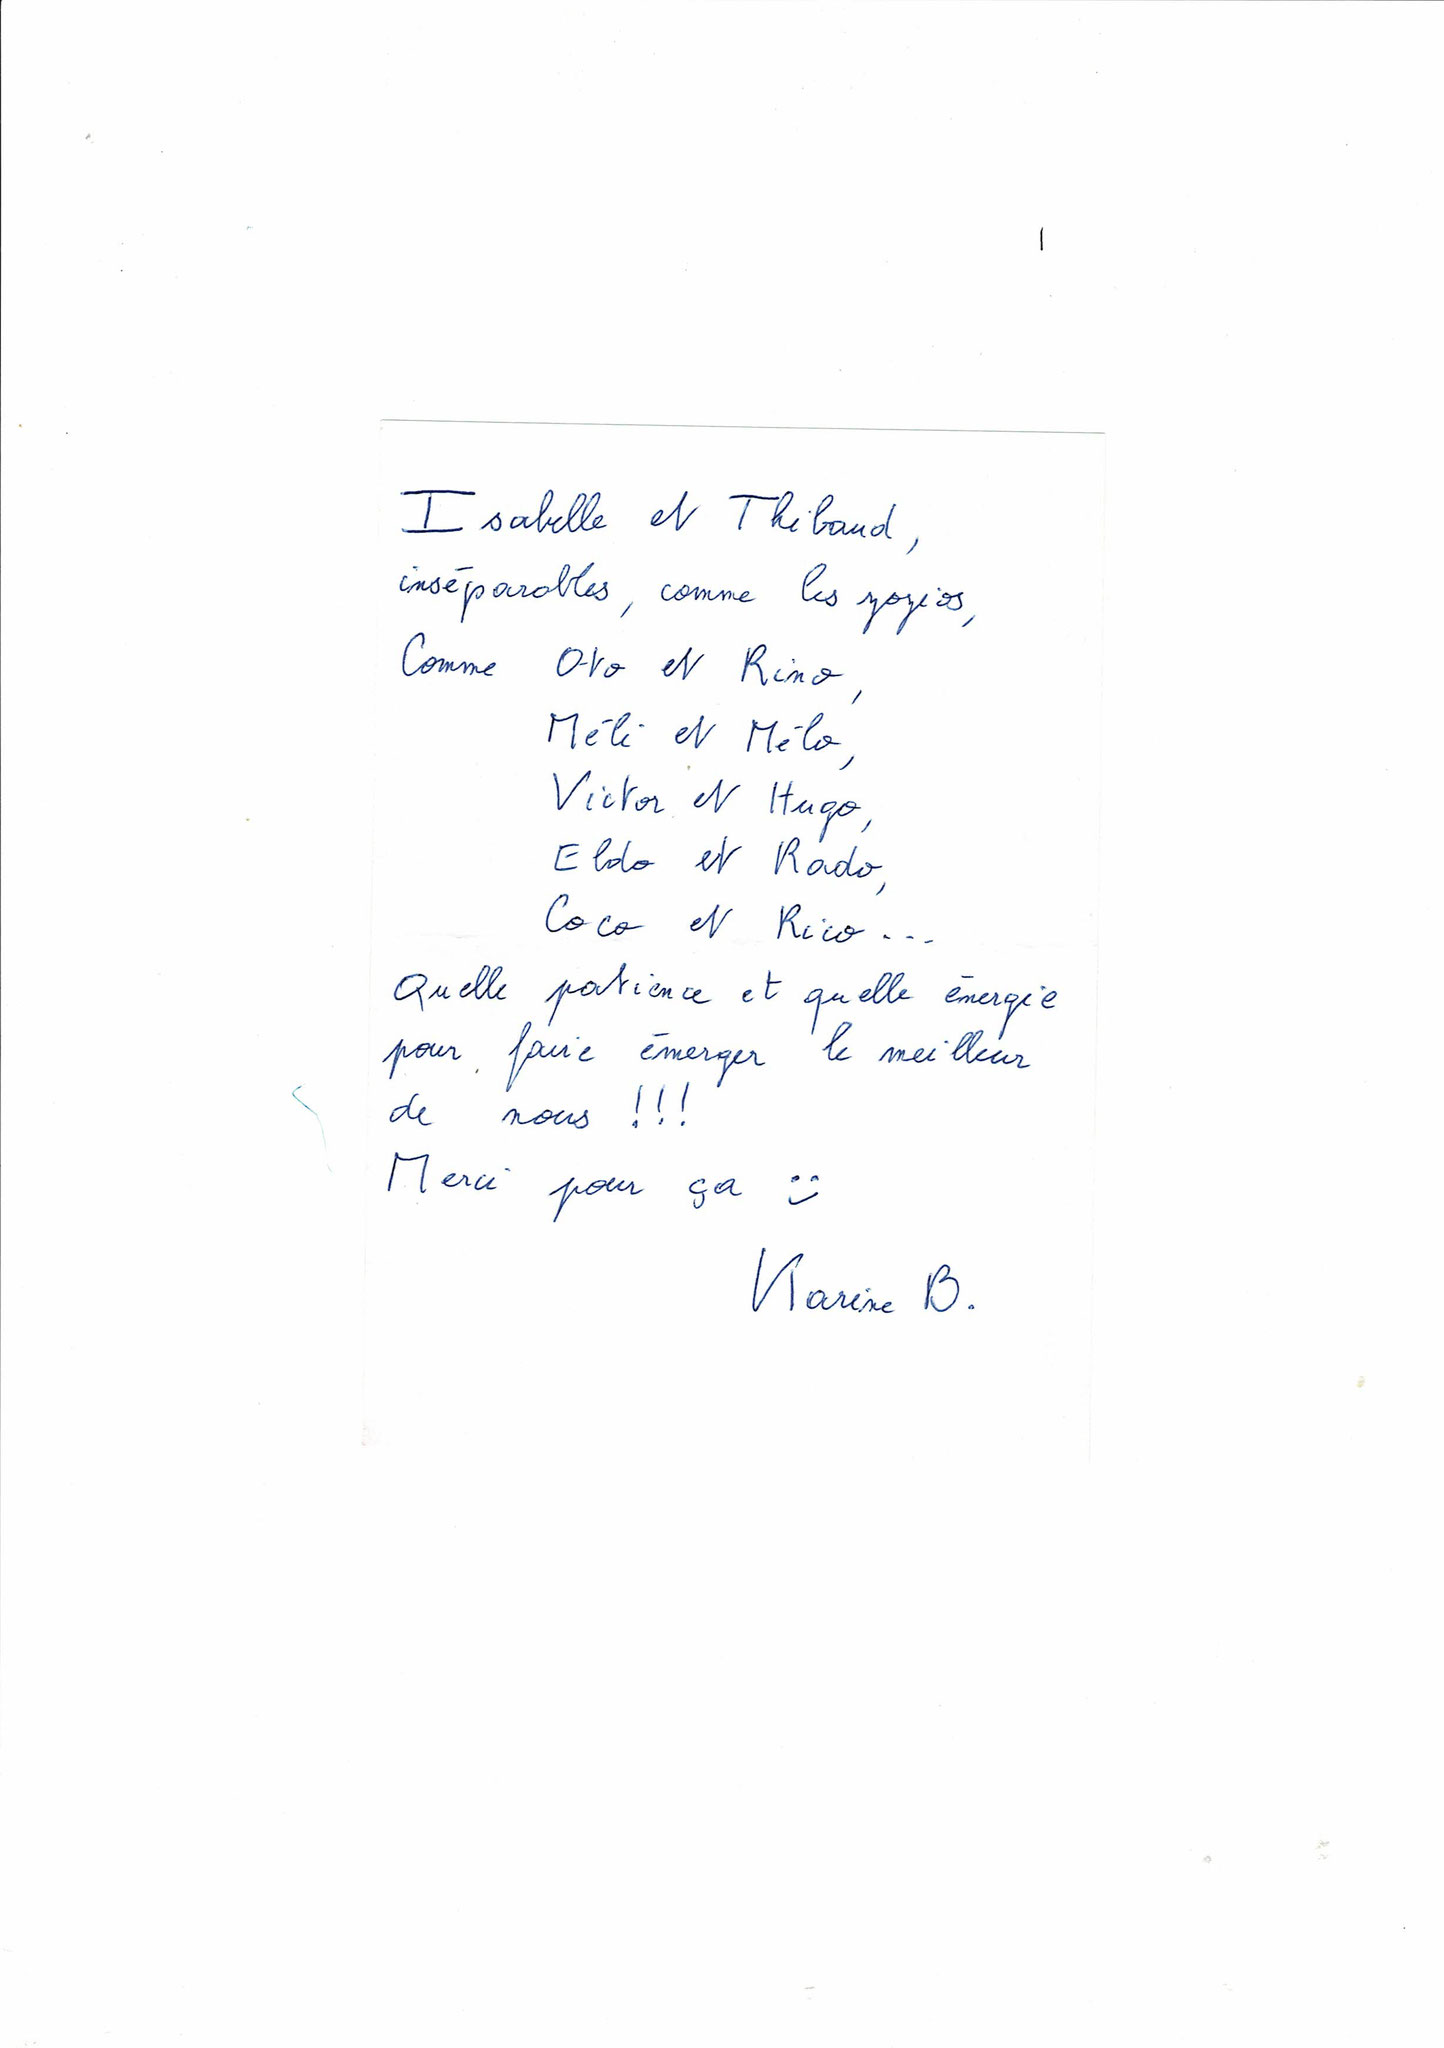 Isabelle et Thibaud,
inséparables, comme les yoyios,
Comme Oto et Rino,
Méli et Mélo,
Victor et Hugo,
Eldo et Rado,
Coco et Rico...
Quelle patience et quelle énergie
pour faire émerger le meilleur
de nous !!!
Merci pour ça :)
Karine B.